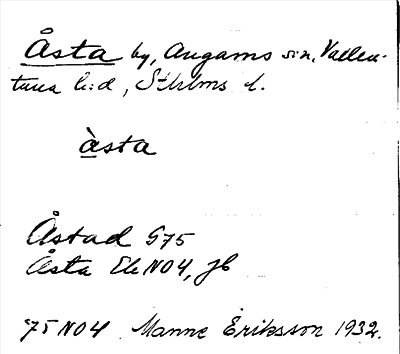 Åsta by, Angarns sn, Vallen-
tuna h:d, Sthlms l.
àsta
Åstad G75
Åsta Ek NO4, Jb
75 NO4 Manne Eriksson 1932.